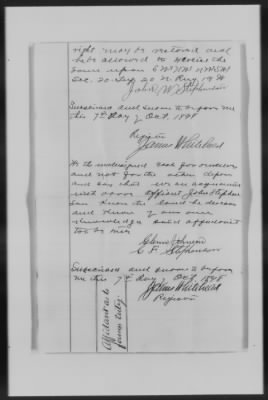 right may be restored and
he be allowed to exercise the
same upon E½ NW¼ W½ SW¼
Sec. 20 Twp 20 N Rng 18 W
John W Stephenson
Subscribed and sworn to before me
this 7th day of Oct. 1898
James Whitehead
Register
We the undersigned each for ourselves
and not for the other depose
and say that we are acquainted
with above affiant John Stephen
son Know the land he describes
and Know of our own
Knowledge said affidavit
to be true
Johnson
C. F. Stephenson
Subscribed and sworn to before
me this 7th day Oct 1898
James Whitehead
Register
Affidavit as to
former entry